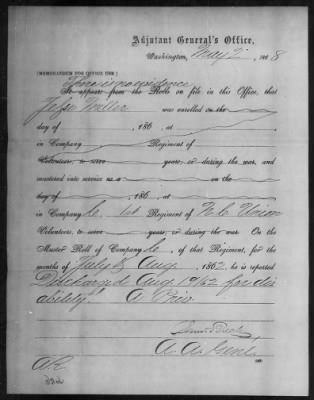 Adjutant General's Office,
Washington, May 2, 1868
[MEMORANDUM FOR OFFICE USE.]
There is no evidence
It appears from the Rolls on file in this Office, that
was enrolled on the
day of , 186 , at
in Company Regiment of
Volunteers, to serve years, or during the war, and
mustered into service as a on the
day of , 186 , at
in Company C, 1st Regiment of N.C. Union
Volunteers, to serve years, or during the war. On the
Muster Roll of Company C, of that Regiment, for the
months of July & Aug, 1862, he is reported
Discharged Aug 19/62 for dis
ability.
A. A. Genl.